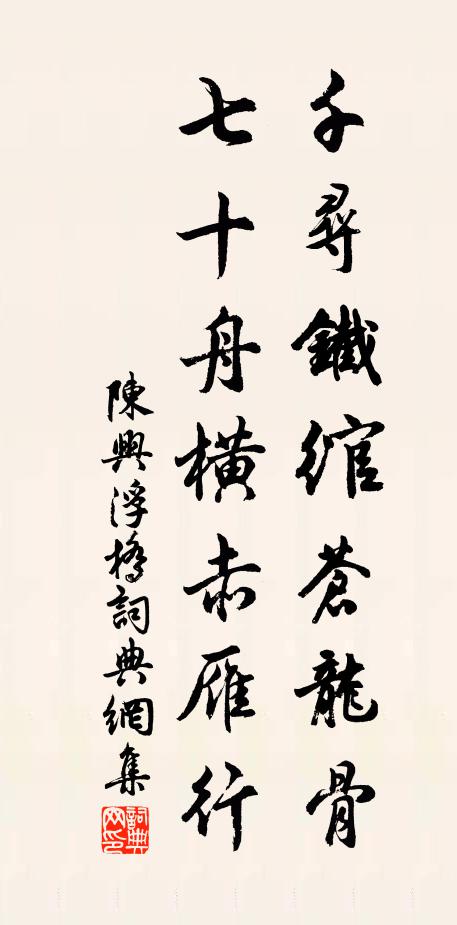 千尋鐵綰蒼龍骨
七十舟橫赤雁行
陳興浮橋詞典網集
詞典网印